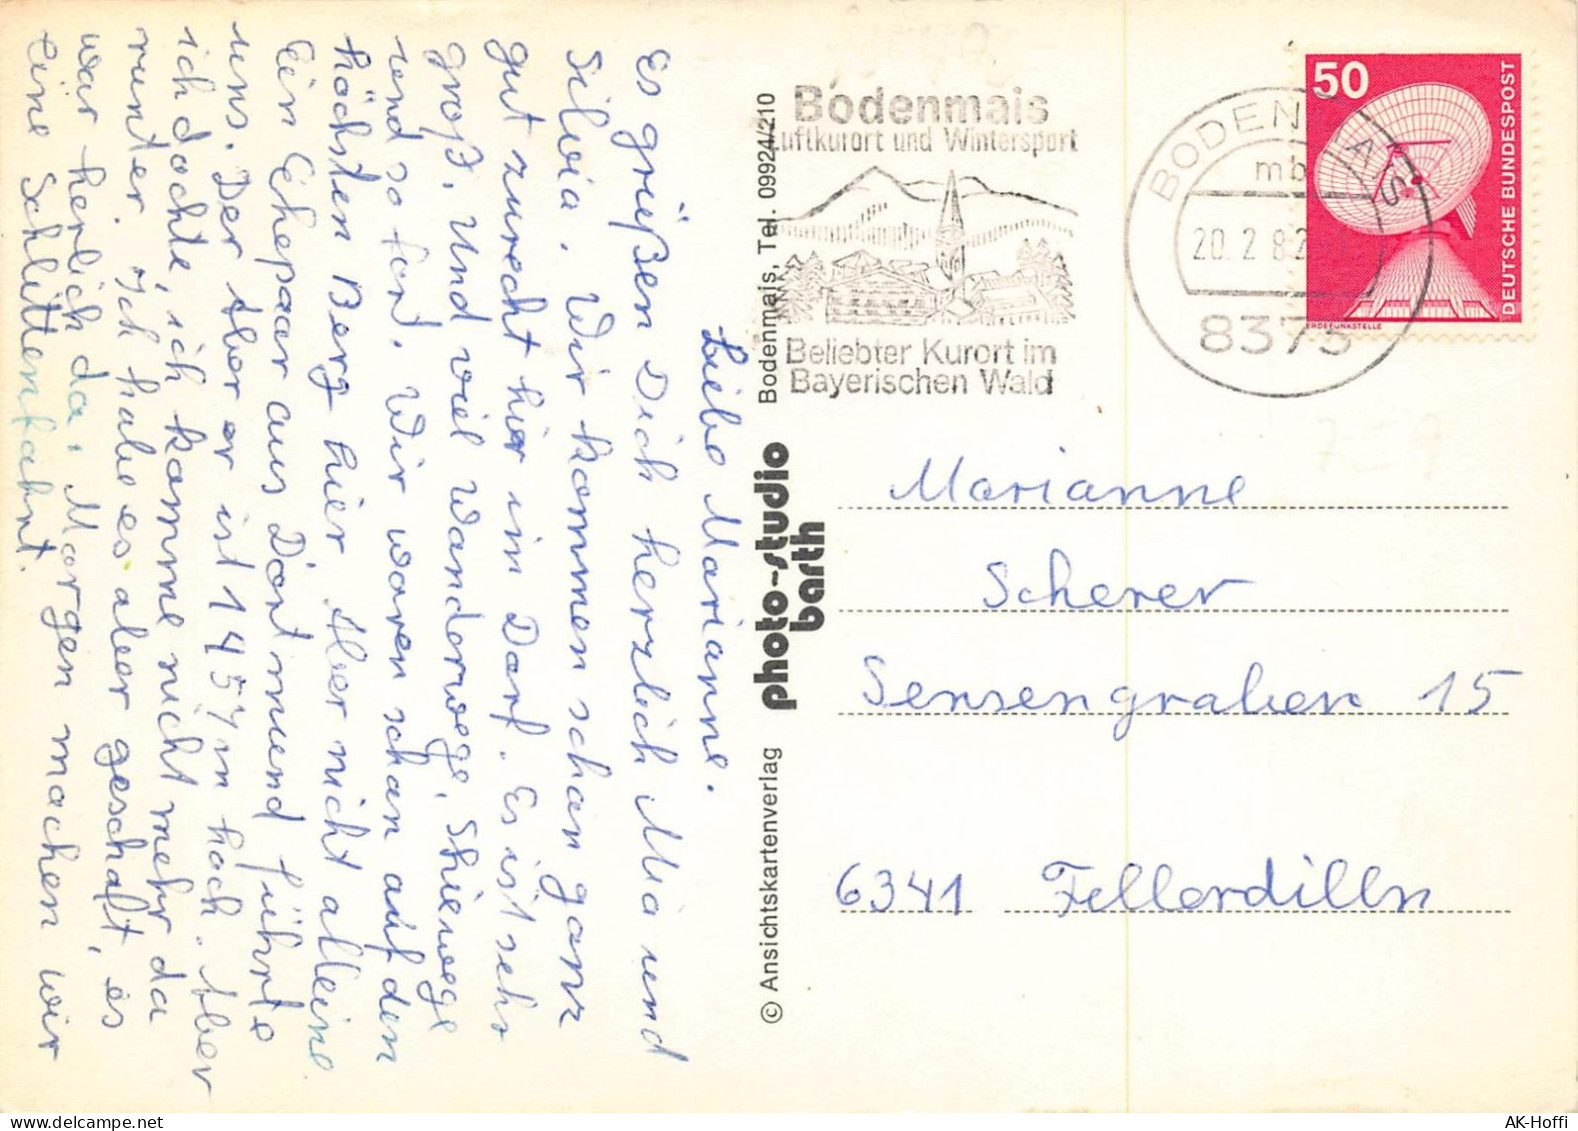 Liebe Marianne.
Es grüßen Dich herzlich Mia und
Silvia. Wir kommen schon ganz
gut zurecht hier im Dorf. Es ist sehr
groß. Und viel Wanderwege, Skiewege
und so fort. Wir waren schon auf den
höchsten Berg hier. Aber nicht alleine
Ein Ehepaar aus Dortmund führte
uns. Der Aber er ist 1457m hoch. Aber
ich dachte, ich komme nicht mehr da
runter. Ich habe es aber geschaft, es
war herlich da. Morgen machen wir
eine Schlittenfahrt.
© Ansichtskartenverlag
photo-studio
barth
Bodenmais, Tel. 09924/210
Bodenmais
Luftkurort und Wintersport
Beliebter Kurort im
Bayerischen Wald
BODENMAIS
mb
20. 2. 82
8373
50
DEUTSCHE BUNDESPOST
ERDEFUNKSTELLE
Marianne
Scherer
Sensengraben 15
6341 Fellerdilln
AK-Hoffi